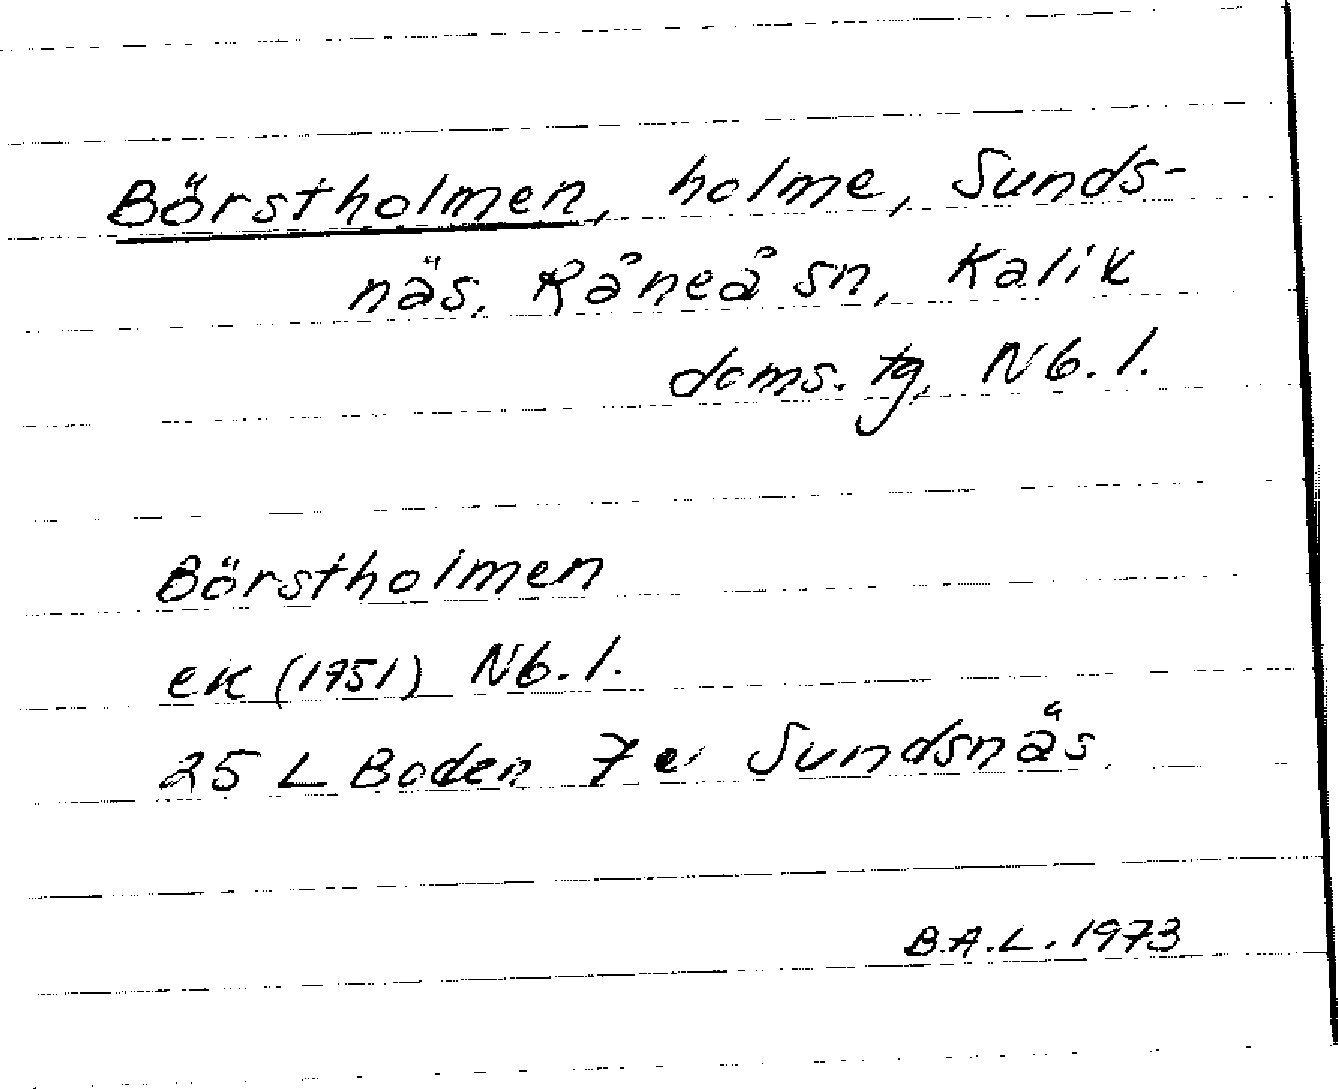 Börstholmen, holme, Sunds-
näs, Råneå sn, Kalix
doms. tg, Nb. l.
Börstholmen
ek (1951) Nb. l.
25 L Boden 7 e Sundsnäs
B.A.L. 1973